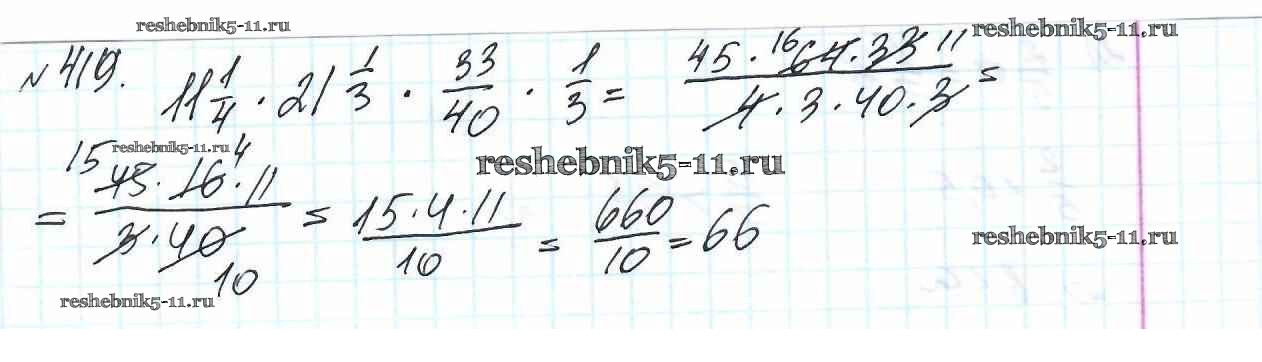 reshebnik5-11.ru reshebnik5-11.ru
№419. 11 1/4 · 21 1/3 · 33/40 · 1/3 = 45 · 16 64 · 33 11 / 4 · 3 · 40 · 3 =
reshebnik5-11.ru
reshebnik5-11.ru
= 15 45 · 16 4 · 11 / 3 · 40 10 = 15 · 4 · 11 / 10 = 660/10 = 66
reshebnik5-11.ru
reshebnik5-11.ru